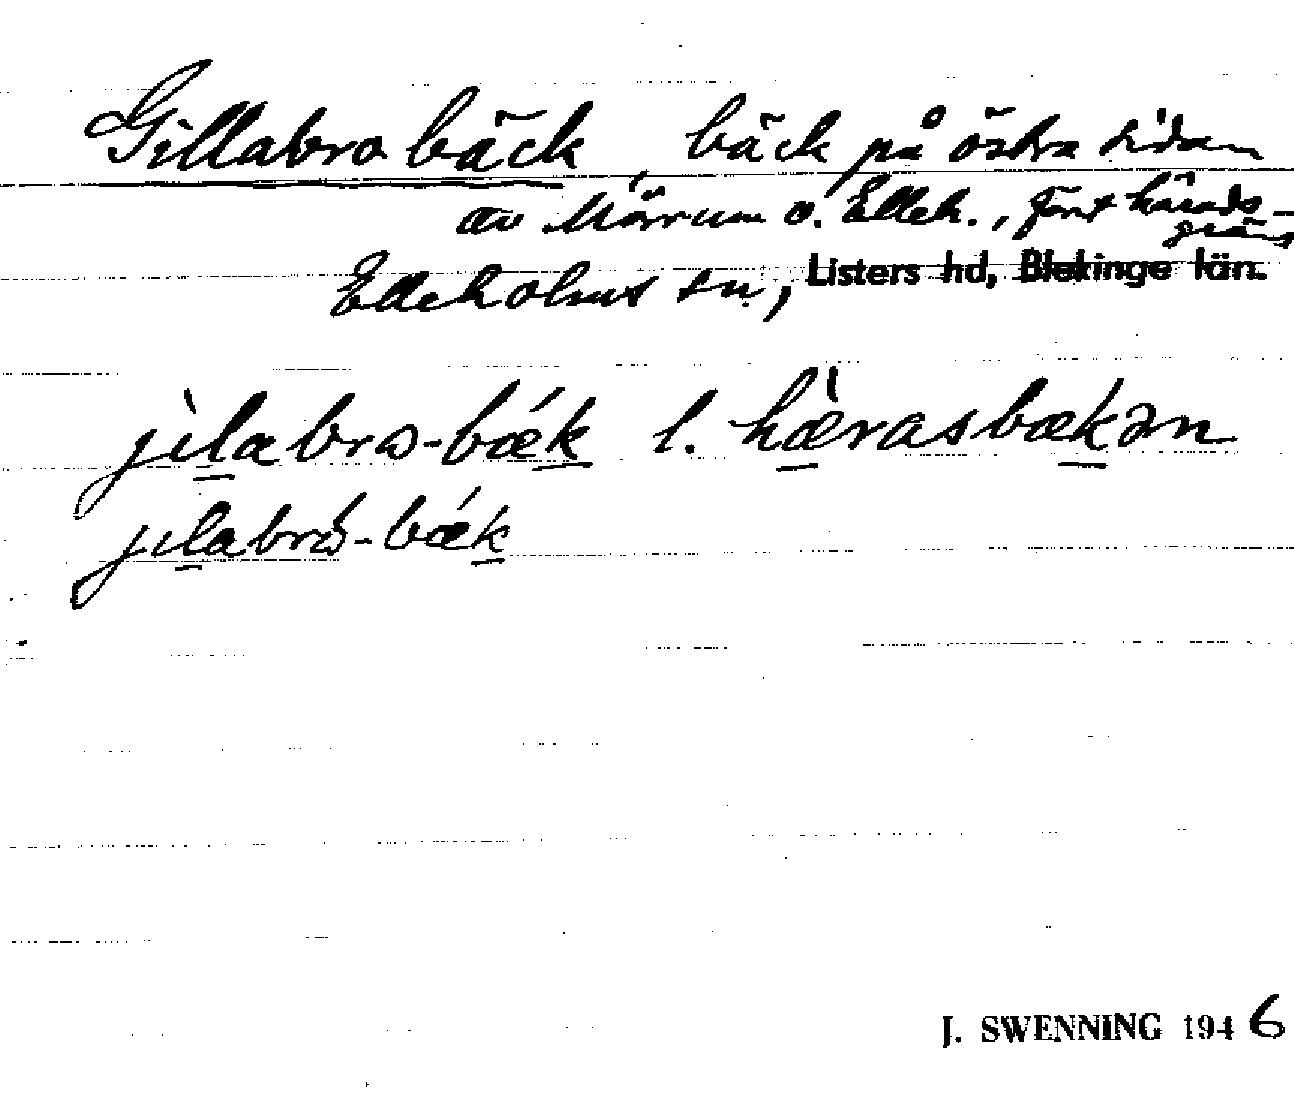 Gillabro bäck, bäck på östra sidan
av Mörrum o. Elleh., förr härads-
gräns
Elleholms sn, Listers hd, Blekinge län.
jìlabrω-bǽk l. hæ̀rasbækən
jılabrώ-bǽk
J. SWENNING 1946